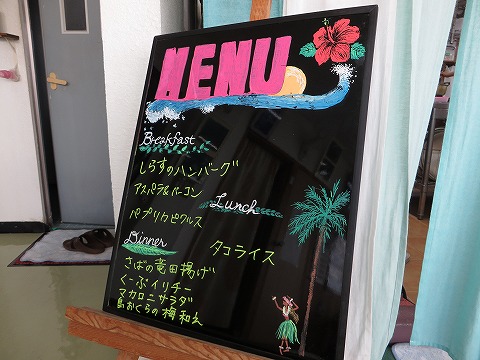 MENU
Breakfast
しらすのハンバーグ
アスパラ&ベーコン
パプリカピクルス
Lunch
タコライス
Dinner
さばの竜田揚げ
くーぶイリチー
マカロニサラダ
島おくらの梅和え